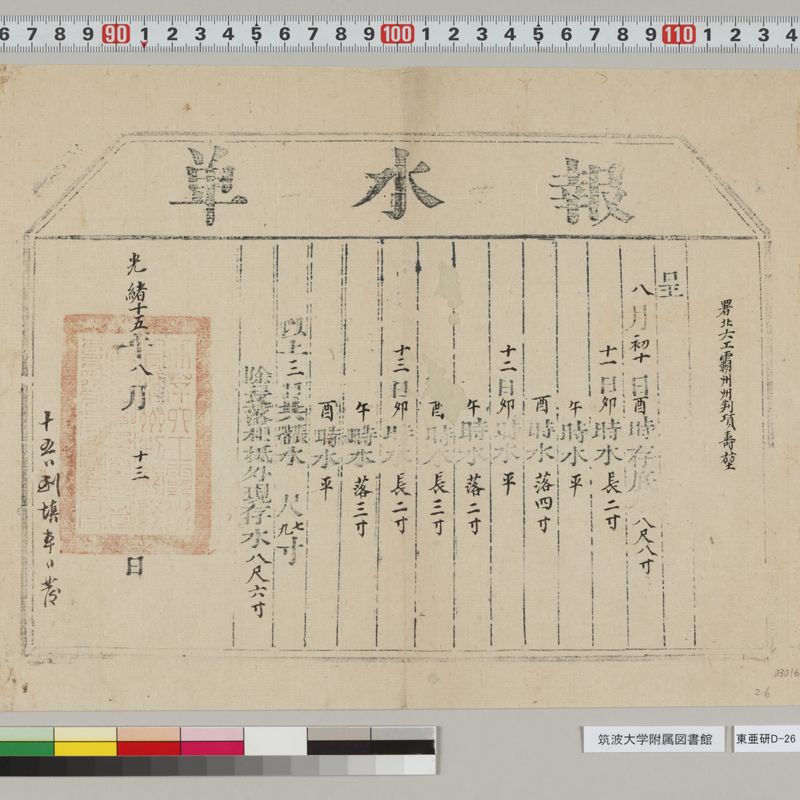 6 7 8 9 90 1 2 3 4 5 6 7 8 9 100 1 2 3 4 5 6 7 8 9 110 1 2 3 4
報水單
署北六工霸州州判項壽堃
呈
八月初十日酉時存底水八尺八寸
十一日卯時水長二寸
午時水平
酉時水落四寸
十二日卯時水平
午時水落二寸
酉時水長三寸
十三日卯時水長二寸
午時水落三寸
酉時水平
以上三日共長水七寸落水九寸
除長落相抵外現存水八尺六寸
光緒十五年八月十三日
十五日到填車日
03016
2-6
筑波大学附属図書館
東亜研D-26